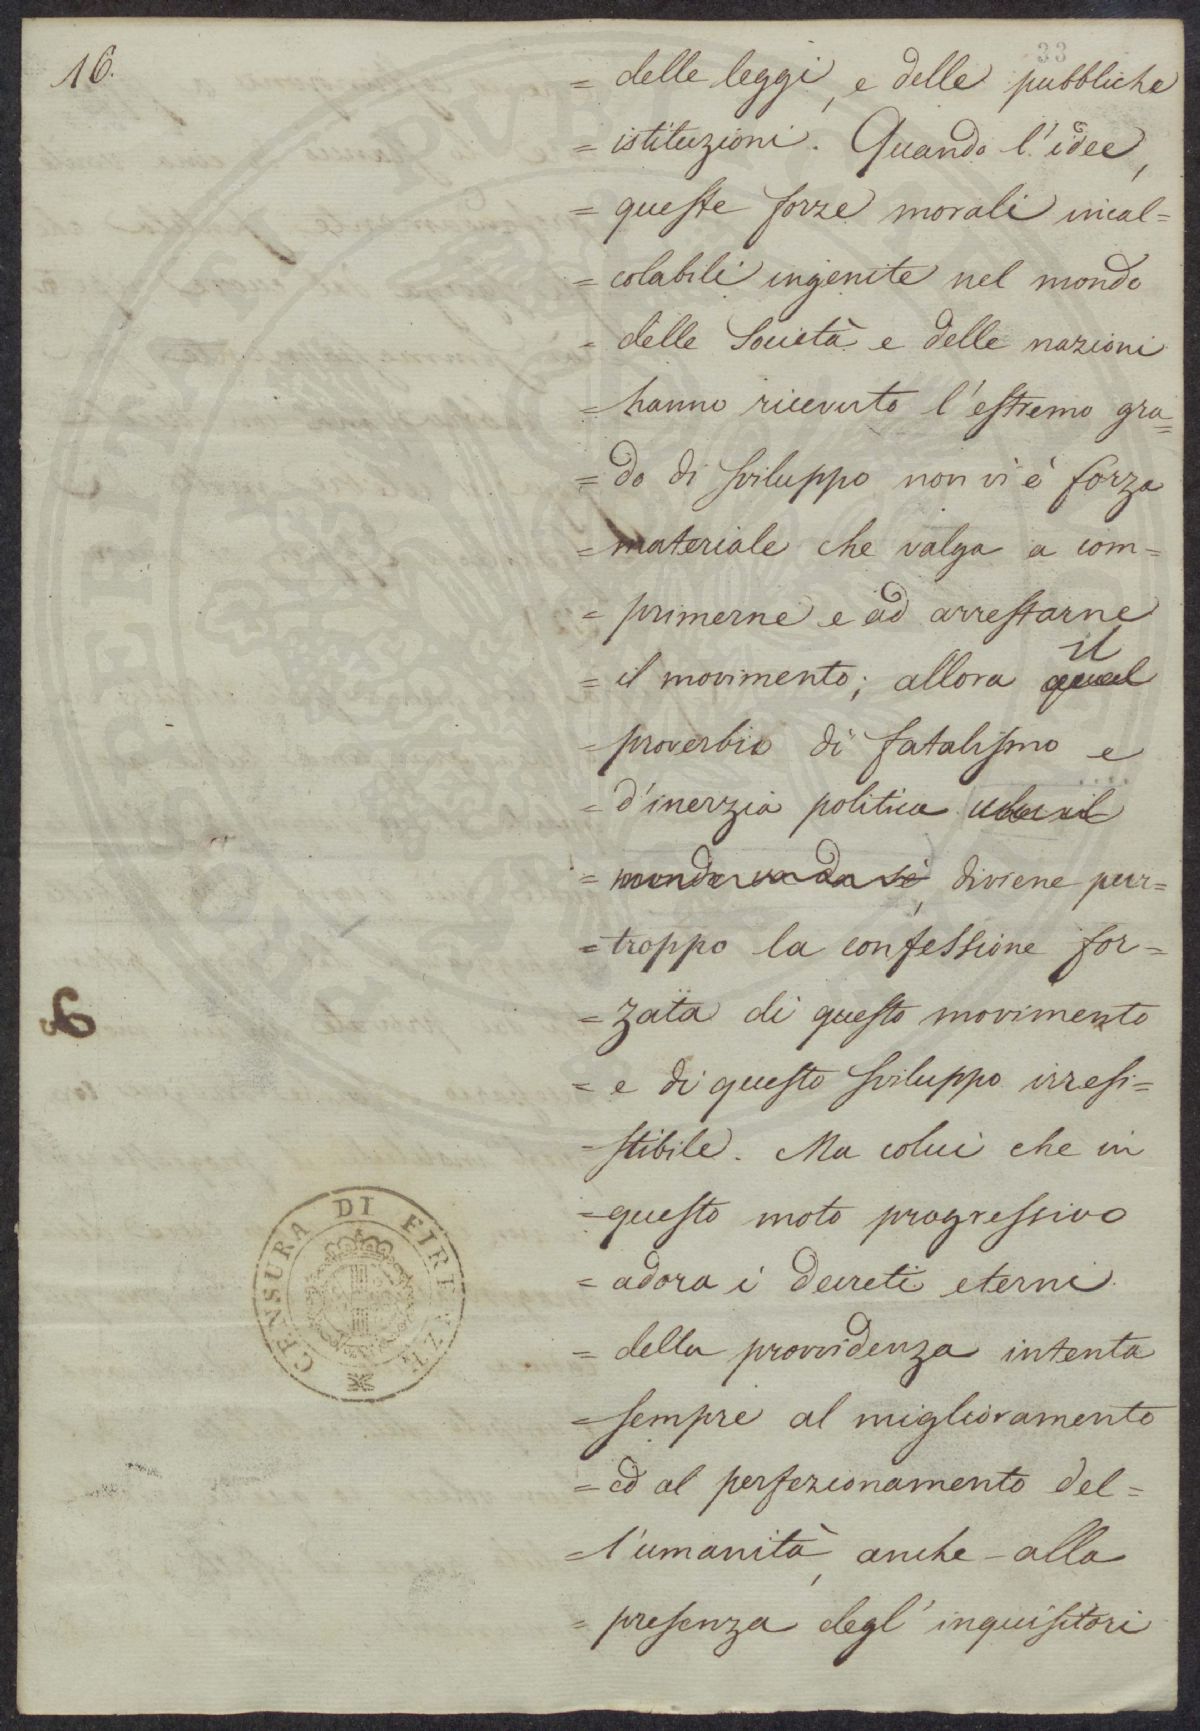 16.
33
= delle leggi, e delle pubbliche
= istituzioni. Quando l'idee,
= queste forze morali incal=
= colabili ingenite nel mondo
= delle Società e delle nazioni
= hanno ricevuto l'estremo gra=
= do di sviluppo non vi è forza
= materiale che valga a com=
= primerne e ad arrestarne
= il movimento; allora il qual
= proverbio di fatalismo e
= d'inerzia politica il
= mondo va da sè, diviene pur=
= troppo la confessione for=
= zata di questo movimento
= e di questo sviluppo irresi=
= stibile. Ma colui che in
= questo moto progressivo
= adora i decreti eterni
= della provvidenza intenta
= sempre al miglioramento
= ed al perfezionamento del=
= l'umanità, anche alla
= presenza degl'inquisitori
CENSURA DI FIRENZE